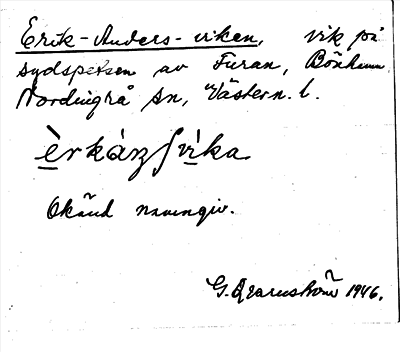 Erik-Anders-viken, vik på
sydspetsen av Furan, Bönhamn
Nordingrå sn, Västern. l.
èrkánʃvìka
Okänd namngiv.
G. Qvarnström 1946.